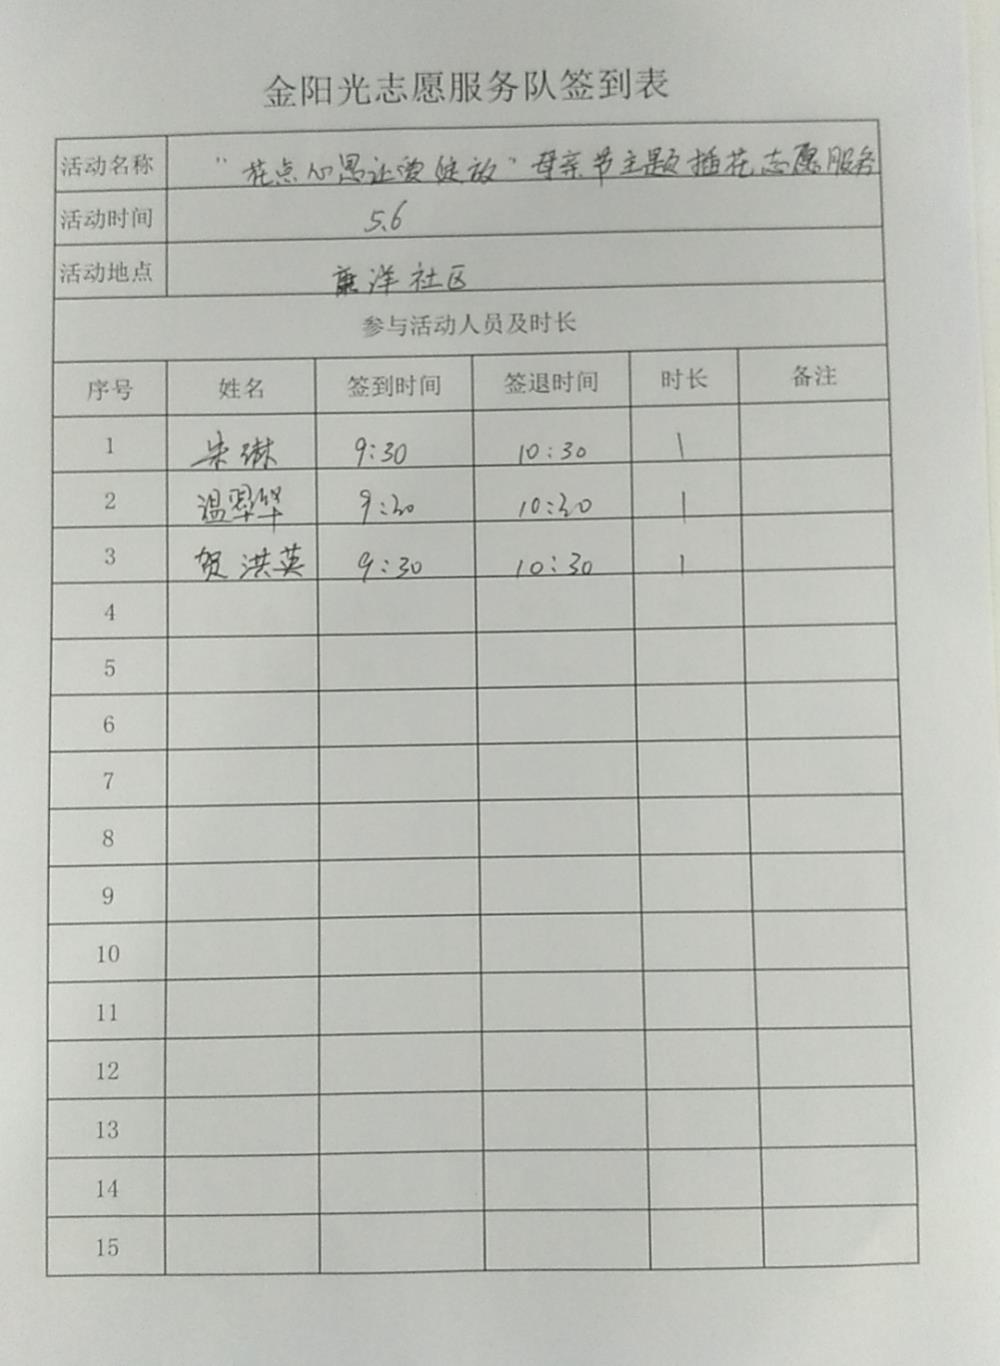 金阳光志愿服务队签到表
活动名称 "花点心思让爱绽放"母亲节主题插花志愿服务
活动时间 5.6
活动地点 洋社区
参与活动人员及时长
序号 姓名 签到时间 签退时间 时长 备注
1 朱琳 9:30 10:30 1
2 温翠华 9:30 10:30 1
3 贺洪英 9:30 10:30 1
4
5
6
7
8
9
10
11
12
13
14
15